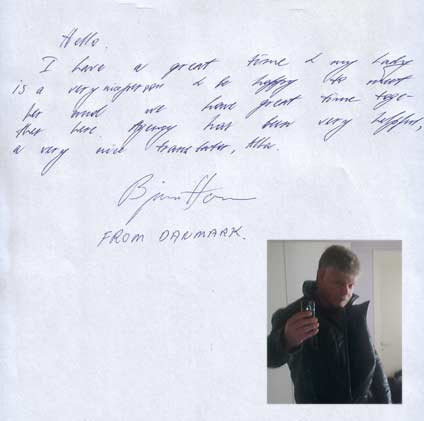 Hello.
I have a great time & my lady
is a very nice person & so happy to meet
her and we have great time toge-
ther here. Agency has been very helpful,
a very nice translator, Alla.
FROM DANMARK.